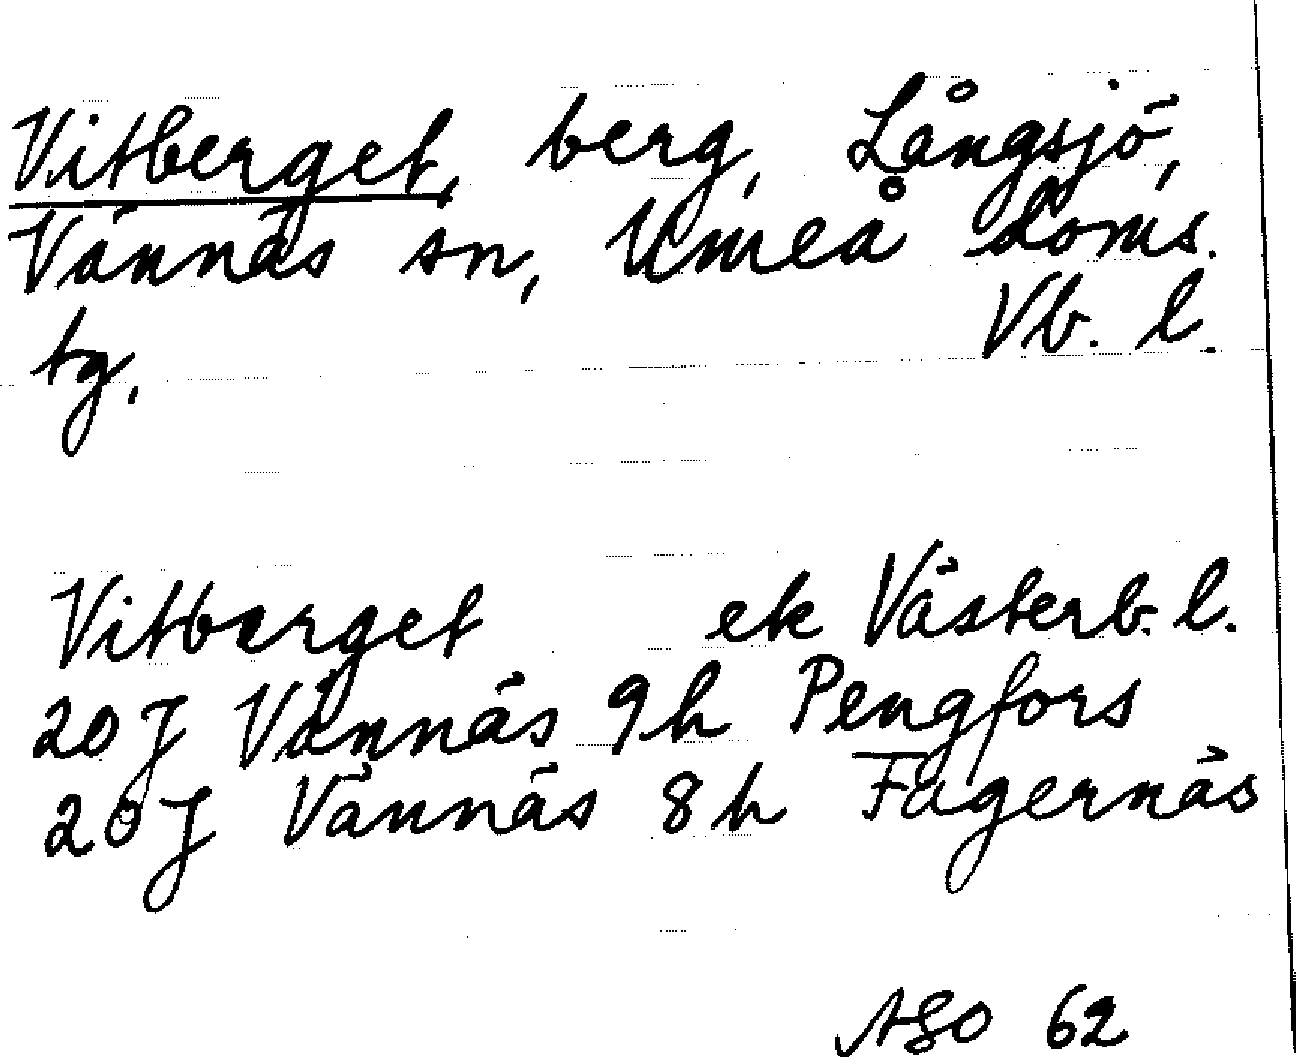 Vitberget, berg, Långsjö,
Vännäs sn, Umeå doms.
tg. Vb. l.
Vitberget ek Västerb. l.
20 J Vännäs 9h Pengfors
20 J Vännäs 8h Fagernäs
ASO 62